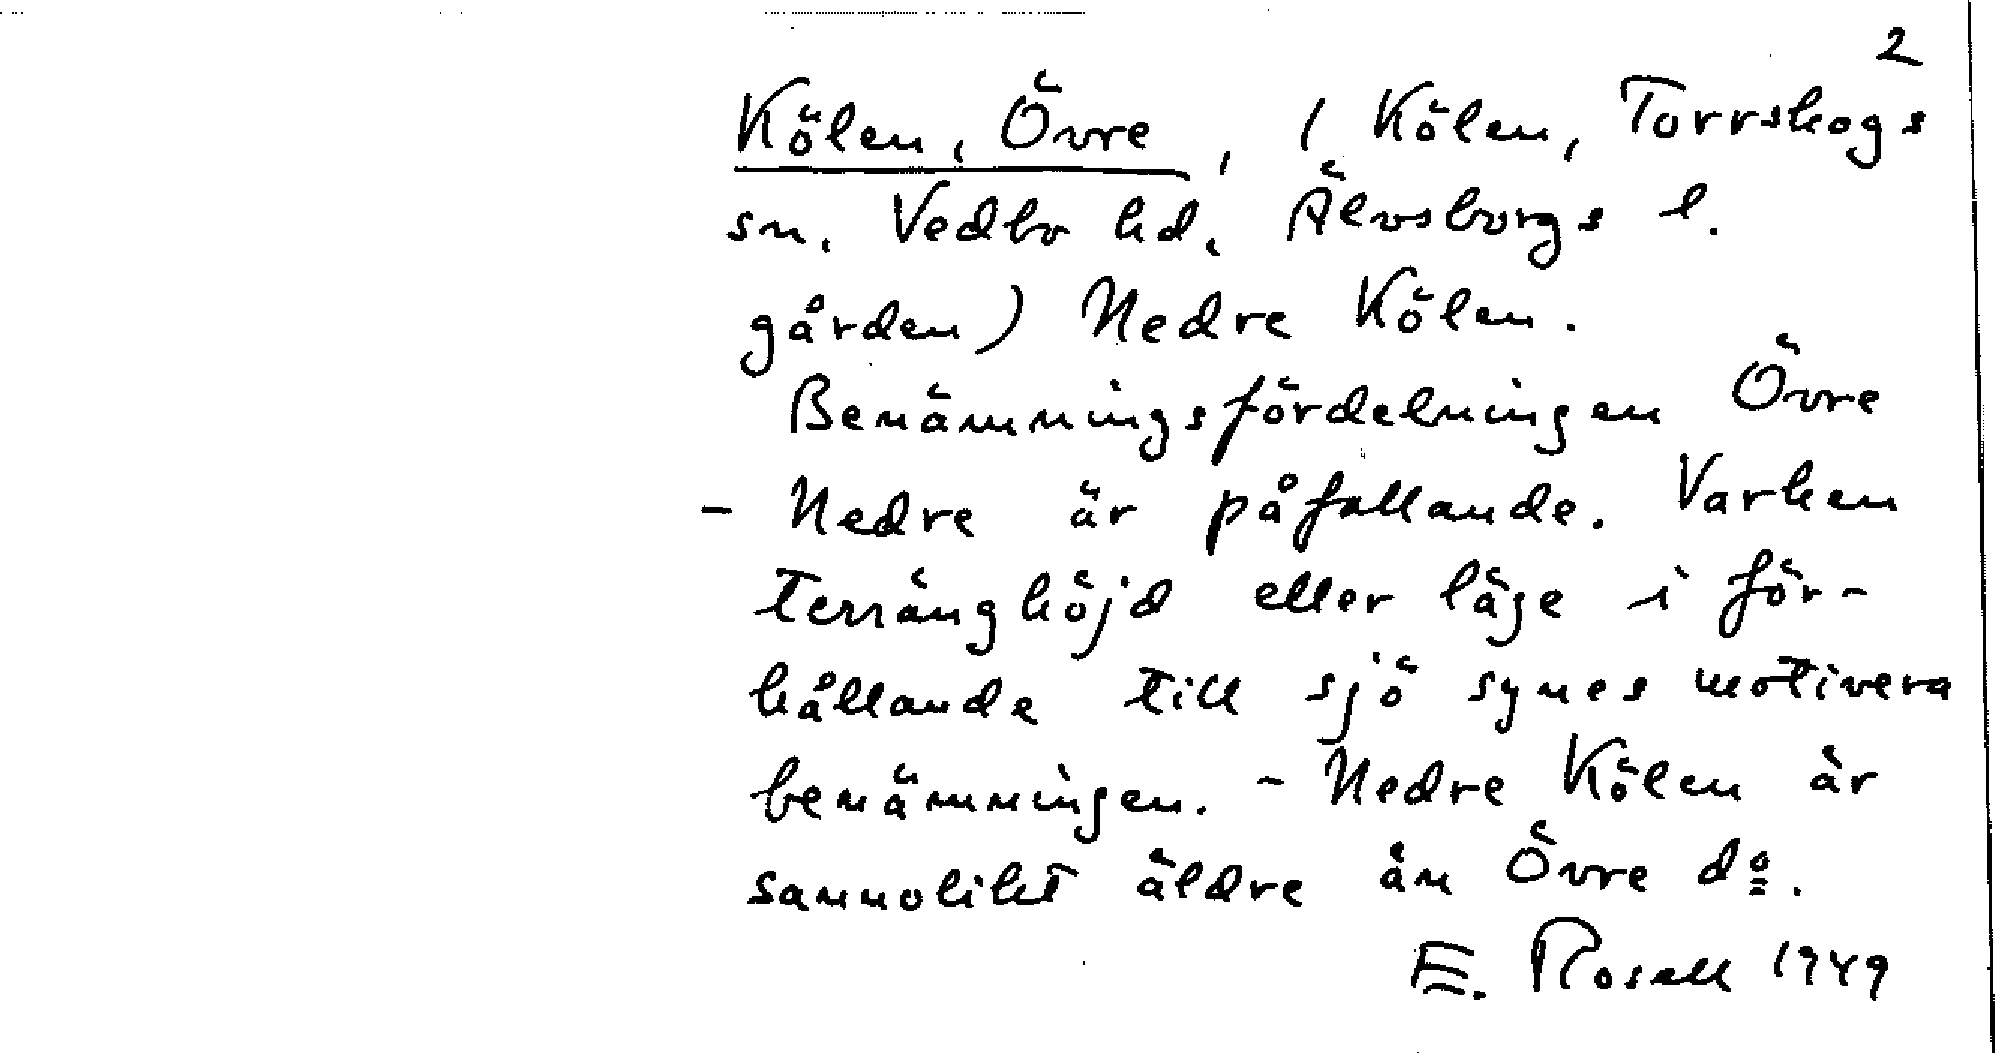 2
Kölen, Övre, / Kölen, Torrskogs
sn. Vedbo hd. Älvsborgs l.
gården) Nedre Kölen.
Benämningsfördelningen Övre
- Nedre är påfallande. Varken
terränghöjd eller läge i för-
hållande till sjö synes motivera
benämningen. - Nedre Kölen är
sannolikt äldre än Övre dº.
E. Rosell 1949